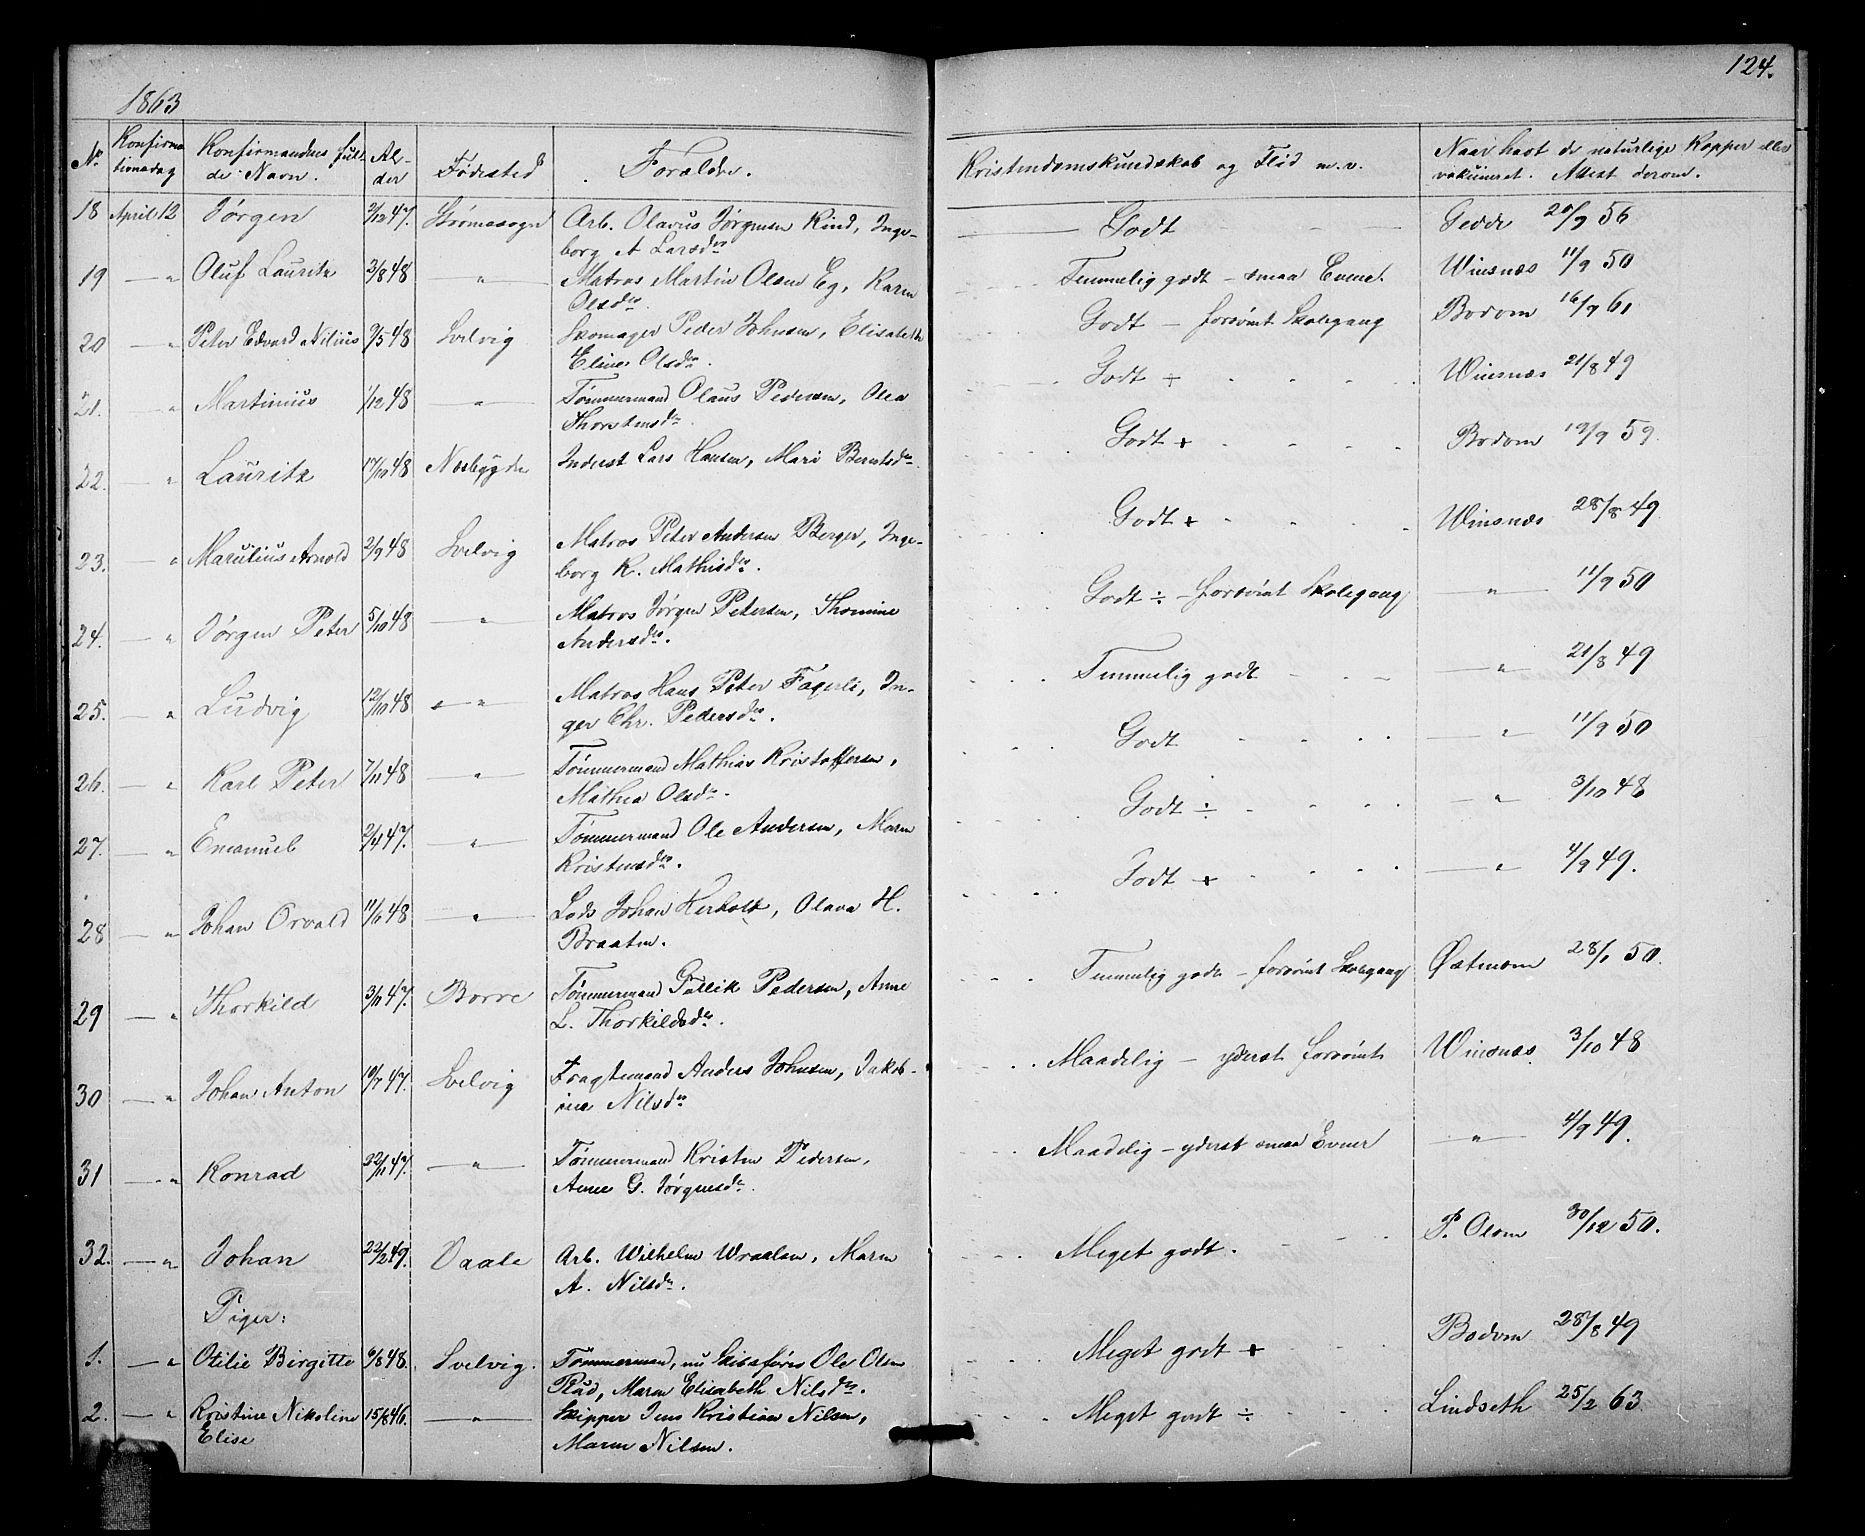 124.
1863
Nr. Konfirmationsdag Konfirmandens fulde Navn. Alder Fødested Forældre. Kristendomskundskab og Flid m. v. Naar havt de naturlige Kopper eller vakcineret. Attest derom.
18 April 12 Jørgen 2/12 47. Strømssogn Arb. Olavus Jørgensen Rind, Inge-
borg A Larsdr. Godt Gedde 20/9 56
19 — " Oluf Lauritz 3/8 48 — " — Matros Martin Olsen Eg, Karen
Olsdr. Temmelig godt – smaa Evner. Winsnæs 11/9 50
20 — " Peter Edvard Nilius 9/5 48 Svelvig Skomager Peder Johnsen, Elisabeth
Eline Olsdr. Godt – forsømt Skolegang Bodom 16/9 61
21. — " Martinius 1/12 48 — " — Tømmermand Olaus Pedersen, Olea
Thorstensdr. Godt ÷ Winsnæs 21/8 49
22. — " Lauritz 17/10 48 Nesbygde Inderst Lars Hansen, Mari Berntsdr. Godt + Bodom 19/9 59.
23. — " Marulius Arnold 2/9 48 Svelvig Matros Peter Andersen Berger, Inge-
borg K. Mathisdr. Godt + Winsnæs 28/8 49
24. — " Jørgen Peter 5/10 48 — " — Matros Jørgen Petersen, Thomine
Andersdr. Godt ÷ – forsømt Skolegang — " — 11/9 50
25. — " Ludvig 12/10 48 — " Matros Hans Peter Fagerli, In-
ger Chr. Pedersdr. Temmelig godt — " — 21/8 49
26. — " Karl Peter 7/11 48 — " — Tømmermand Mathias Kristoffersen,
Mathea Olsdr. Godt — " — 11/9 50
27. — " Emanuel 2/4 47. — " — Tømmermand Ole Andersen, Maren
Kristensdr. Godt ÷ — " — 3/10 48
28 — " Johan Orvald 11/6 48 — " — Lods Johan Herholt, Olava H.
Braaten. Godt + — " — 4/9 49.
29 — " Thorkild 3/11 47. Borre Tømmermand Gullik Pedersen, Anne
L. Thorkildsdr. Temmelig godt – forsømt Skolegang Østmom 28/1 50.
30 — " Johan Anton 10/7 47. Svelvig Fragtemand Anders Johnsen, Jakob-
ine Nilsdr. Maadelig – yderst forsømt Winsnæs 3/10 48
31 — " Konrad 22/11 47. — " — Tømmermand Kristen Pedersen,
Anne G. Jørgensdr. Maadelig – yderst smaa Evner — " — 4/9 49.
32. — " Johan 22/2 49. Vaale Arb. Wilhelm Wraalsen, Maren
A. Nilsdr. Meget godt. P. Olsen 30/12 50.
Piger:
1. — " Otilie Birgitte 6/8 48. Svelvig. Tømmermand, nu Skibsfører Ole Olsen
Rud, Maren Elisabeth Nilsdr. Meget godt + Bodom 28/8 49
2. — " Kristine Nikoline
Elise 15/8 46. — " — Skipper Jens Kristian Nilsen,
Maren Nilsen. Meget godt ÷ Lindseth 25/2 63